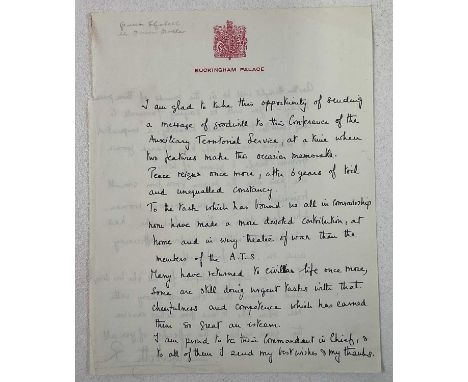 Queen Elizabeth
the Queen Mother
BUCKINGHAM PALACE
I am glad to take this opportunity of sending
a message of goodwill to this Conference of the
Auxiliary Territorial Service, at a time when
two features make this occasion memorable.
Peace reigns once more, after 6 years of toil
and unequalled constancy.
To the task which has bound us all in comradeship
none have made a more devoted contribution, at
home and in every theatre of war than the
members of the A.T.S.
Many have returned to civilian life once more,
some are still doing urgent tasks with that
cheerfulness and competence which has earned
them so great an esteem.
I am proud to be their Commandant in Chief, &
to all of them I send my best wishes & my thanks.